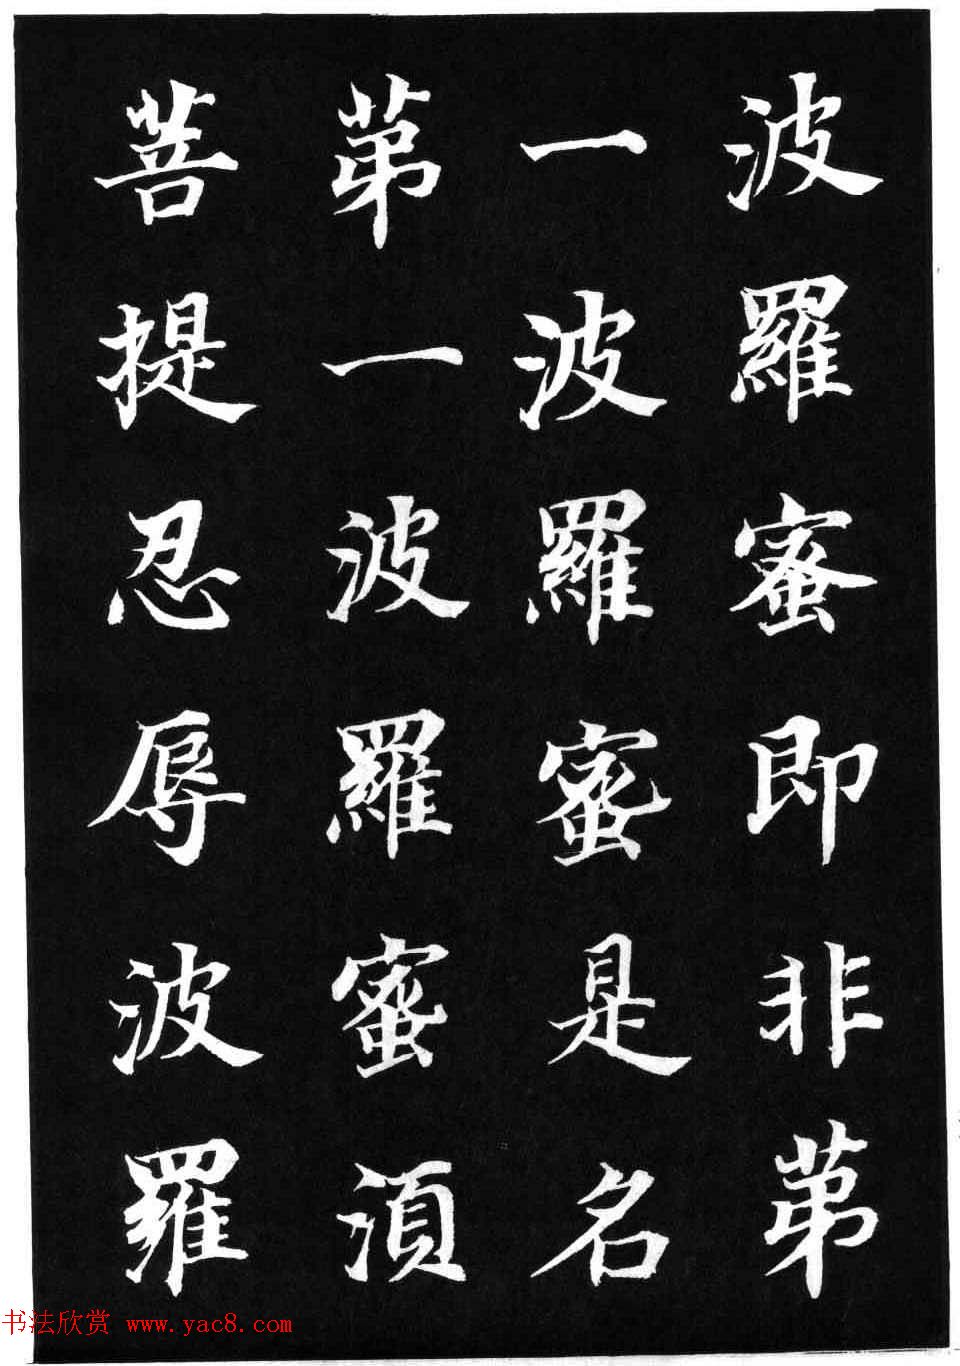 波羅蜜即非苐
一波羅蜜是名
苐一波羅蜜湏
菩提忍辱波羅
书法欣赏 www.yac8.com